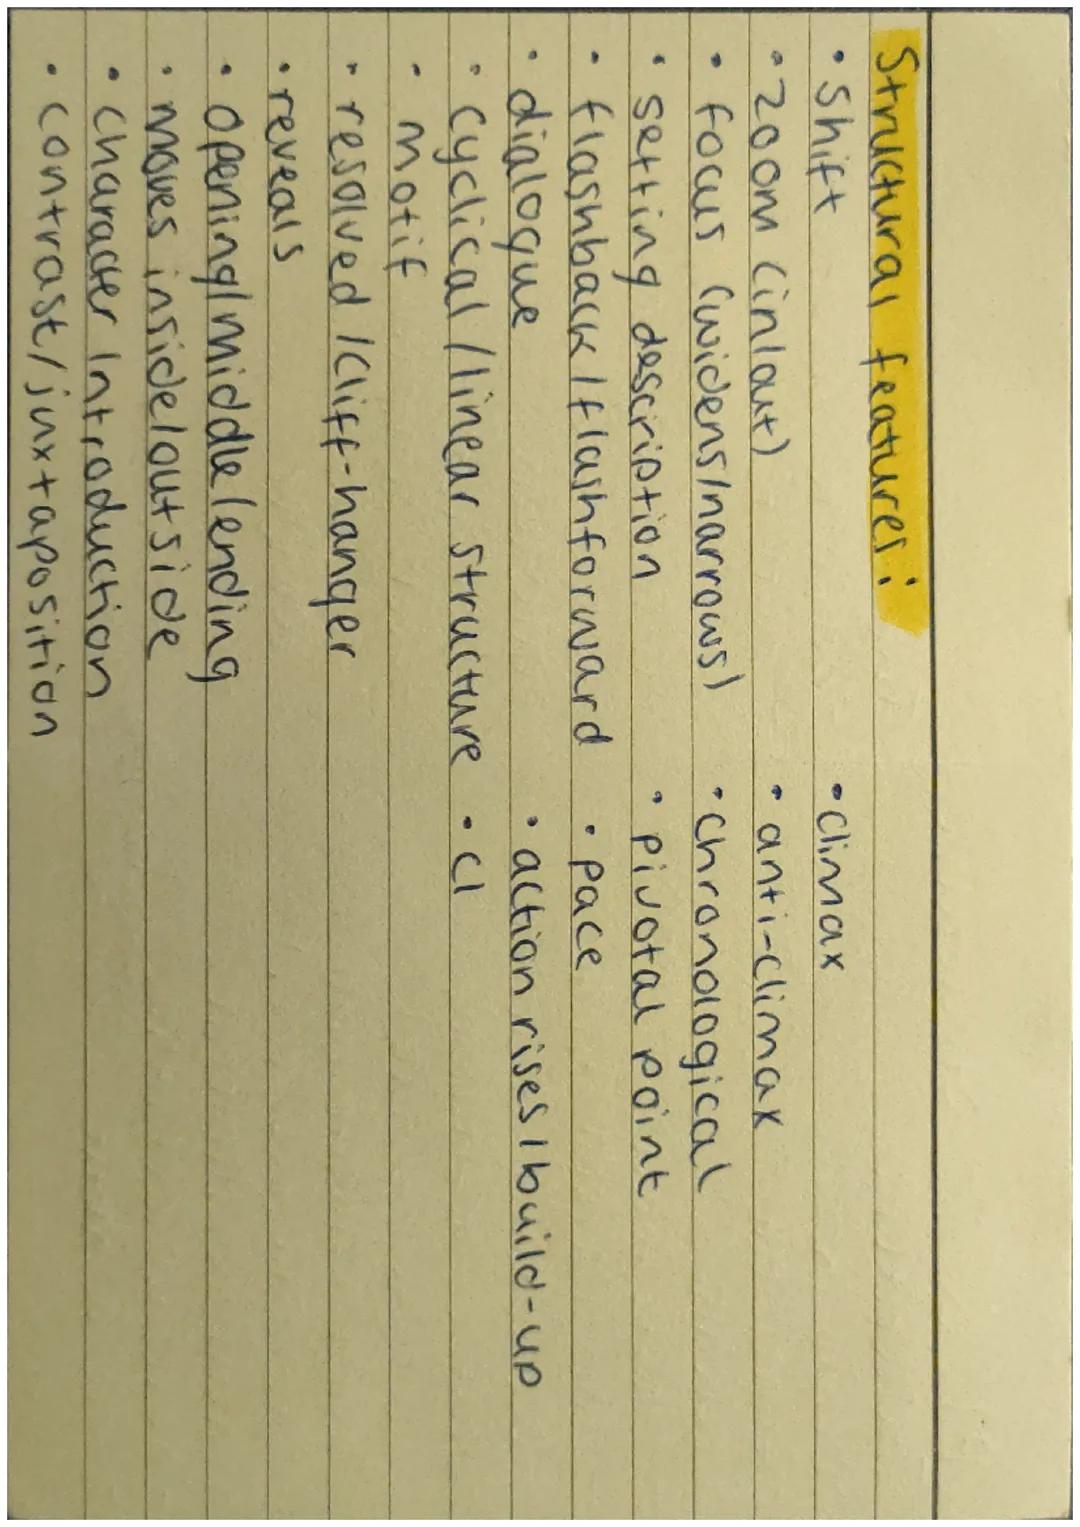 Structural features:
• Shift
• zoom (in/out)
• focus (widens/narrows)
• setting description
• flashback/flashforward
• dialogue
• cyclical/linear structure
• motif
• resolved/cliff-hanger
• reveals
• opening/middle/ending
• moves inside/outside
• character introduction
• contrast/juxtaposition
• climax
• anti-climax
• chronological
• pivotal point
• pace
• action rises/build-up
• cl